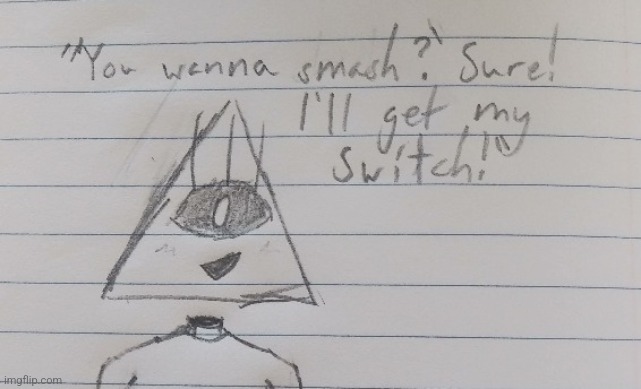 "You wanna smash?" Sure!
I'll get my
Switch!"
imgflip.com